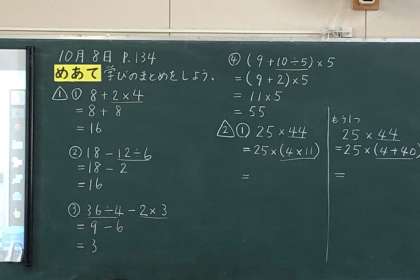 10月8日 P.134
めあて 学びのまとめをしよう。
1 ① 8 + 2 × 4
= 8 + 8
= 16
② 18 - 12 ÷ 6
= 18 - 2
= 16
③ 36 ÷ 4 - 2 × 3
= 9 - 6
= 3
④ (9 + 10 ÷ 5) × 5
= (9 + 2) × 5
= 11 × 5
= 55
2 ① 25 × 44
= 25 × (4 × 11)
=
もう1つ
25 × 44
= 25 × (4 + 40)
=